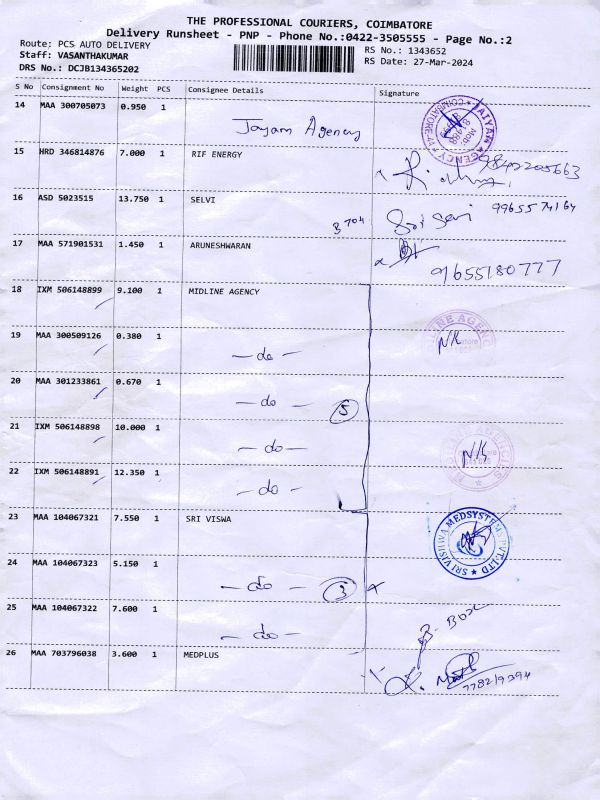 THE PROFESSIONAL COURIERS, COIMBATORE
Delivery Runsheet - PNP - Phone No.:0422-3505555 - Page No.:2
Route: PCS AUTO DELIVERY
RS No.: 1343652
Staff: VASANTHAKUMAR
RS Date: 27-Mar-2024
DRS No.: DCJB134365202
S No Consignment No Weight PCS Consignee Details Signature
14 MAA 300705073 0.950 1
Jayam Agency
JAIYAM AGENCY
COIMBATORE
15 HRD 346814876 7.000 1 RIF ENERGY
9842205663
16 ASD 5023515 13.750 1 SELVI
Sri Selvi 9965574164
17 MAA 571901531 1.450 1 ARUNESHWARAN
9655180777
18 IXM 506148899 9.100 1 MIDLINE AGENCY
19 MAA 300509126 0.380 1
- do -
20 MAA 301233861 0.670 1
- do - 5
21 IXM 506148898 10.000 1
- do -
22 IXM 506148891 12.350 1
- do -
23 MAA 104067321 7.550 1 SRI VISWA
SRI VISHWA MEDSYSTEMS PVT. LTD
24 MAA 104067323 5.150 1
- do - 3
25 MAA 104067322 7.600 1
- do -
3. Box
26 MAA 703796038 3.600 1 MEDPLUS